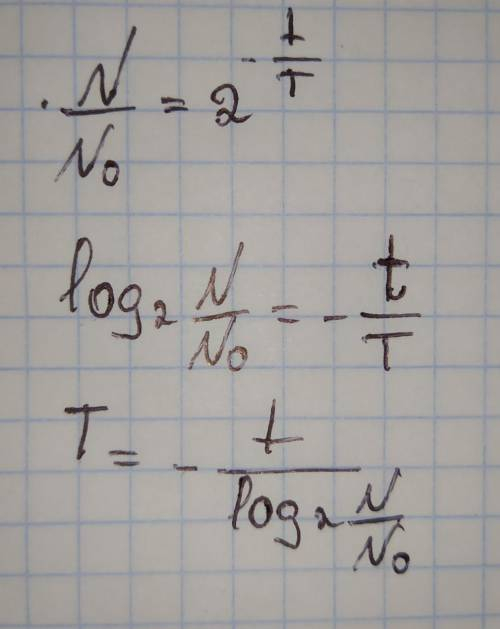 N/N₀ = 2^(-t/T)
log₂ N/N₀ = - t/T
T = - t/(log₂ N/N₀)